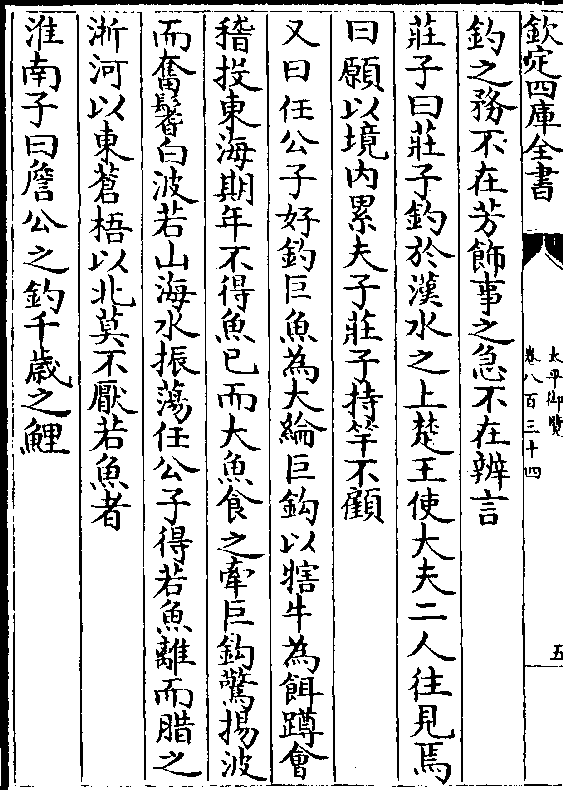 欽定四庫全書
太平御覽
卷八百三十四
五
釣之務不在芳飾事之急不在辨言
莊子曰莊子釣於漢水之上楚王使大夫二人往見焉
曰願以境內累夫子莊子持竿不顧
又曰任公子好釣巨魚為大綸巨鈎以犗牛為餌蹲會
稽投東海期年不得魚已而大魚食之牽巨鈎驚揚波
而奮鬐白波若山海水振蕩任公子得若魚離而腊之
淛河以東蒼梧以北莫不厭若魚者
淮南子曰詹公之釣千歲之鯉